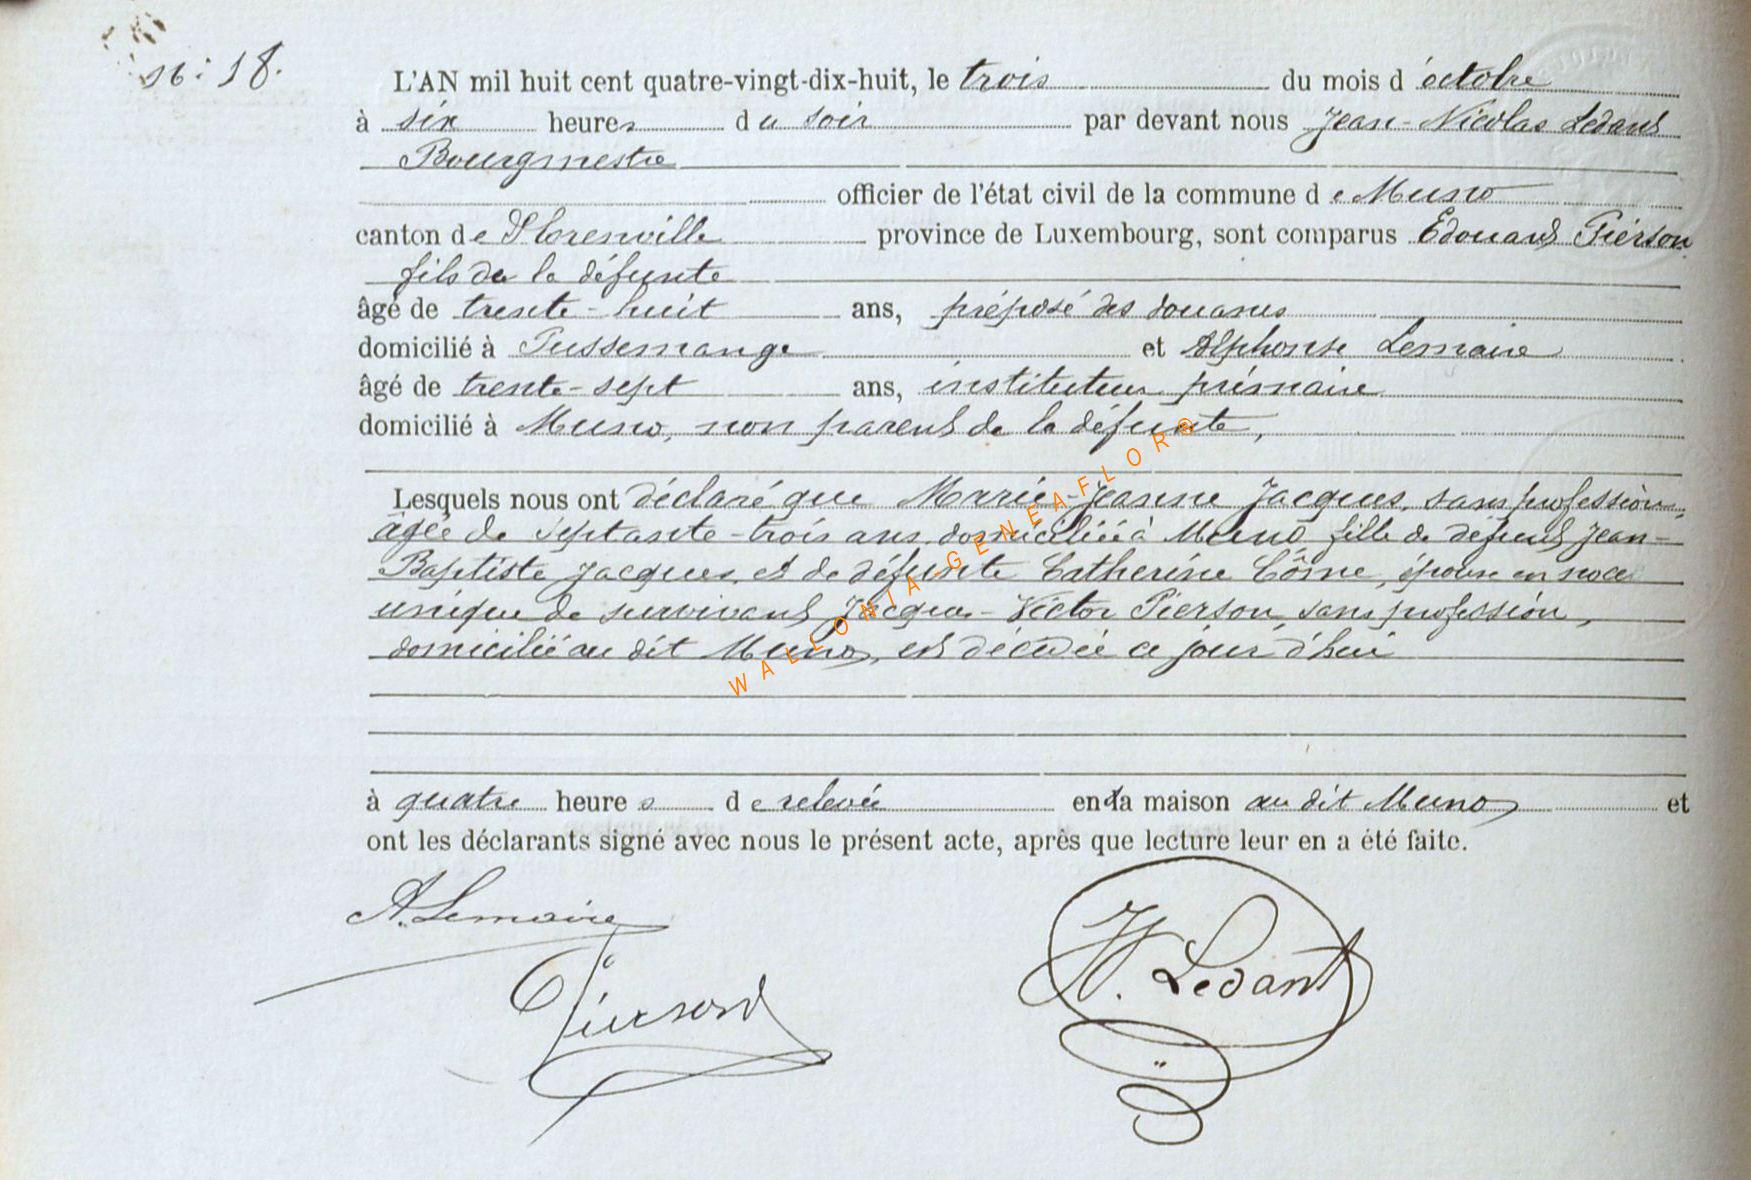 N: 18.
L'AN mil huit cent quatre-vingt-dix-huit, le trois du mois d'octobre
à six heures du soir par devant nous Jean-Nicolas Ledant
Bourgmestre
officier de l'état civil de la commune de Muno
canton de Florenville province de Luxembourg, sont comparus Edouard Pierson
fils de la défunte
âgé de trente-huit ans, préposé des douanes
domicilié à Pussemange et Alphonse Lemaire
âgé de trente-sept ans, instituteur primaire
domicilié à Muno, non parent de la défunte,
Lesquels nous ont déclaré que Marie-Jeanne Jacques, sans profession,
âgée de septante-trois ans, domiciliée à Muno, fille de défunt Jean-
Baptiste Jacques, et de défunte Catherine Côsne, épouse en noce
unique de survivant Jacques-Victor Pierson, sans profession,
domicilié au dit Muno, est décédée ce jour d'hui
à quatre heures de relevée en la maison au dit Muno et
ont les déclarants signé avec nous le présent acte, après que lecture leur en a été faite.
A. Lemaire
Pierson
N. Ledant
WALLONIA-GENEAFLOR®